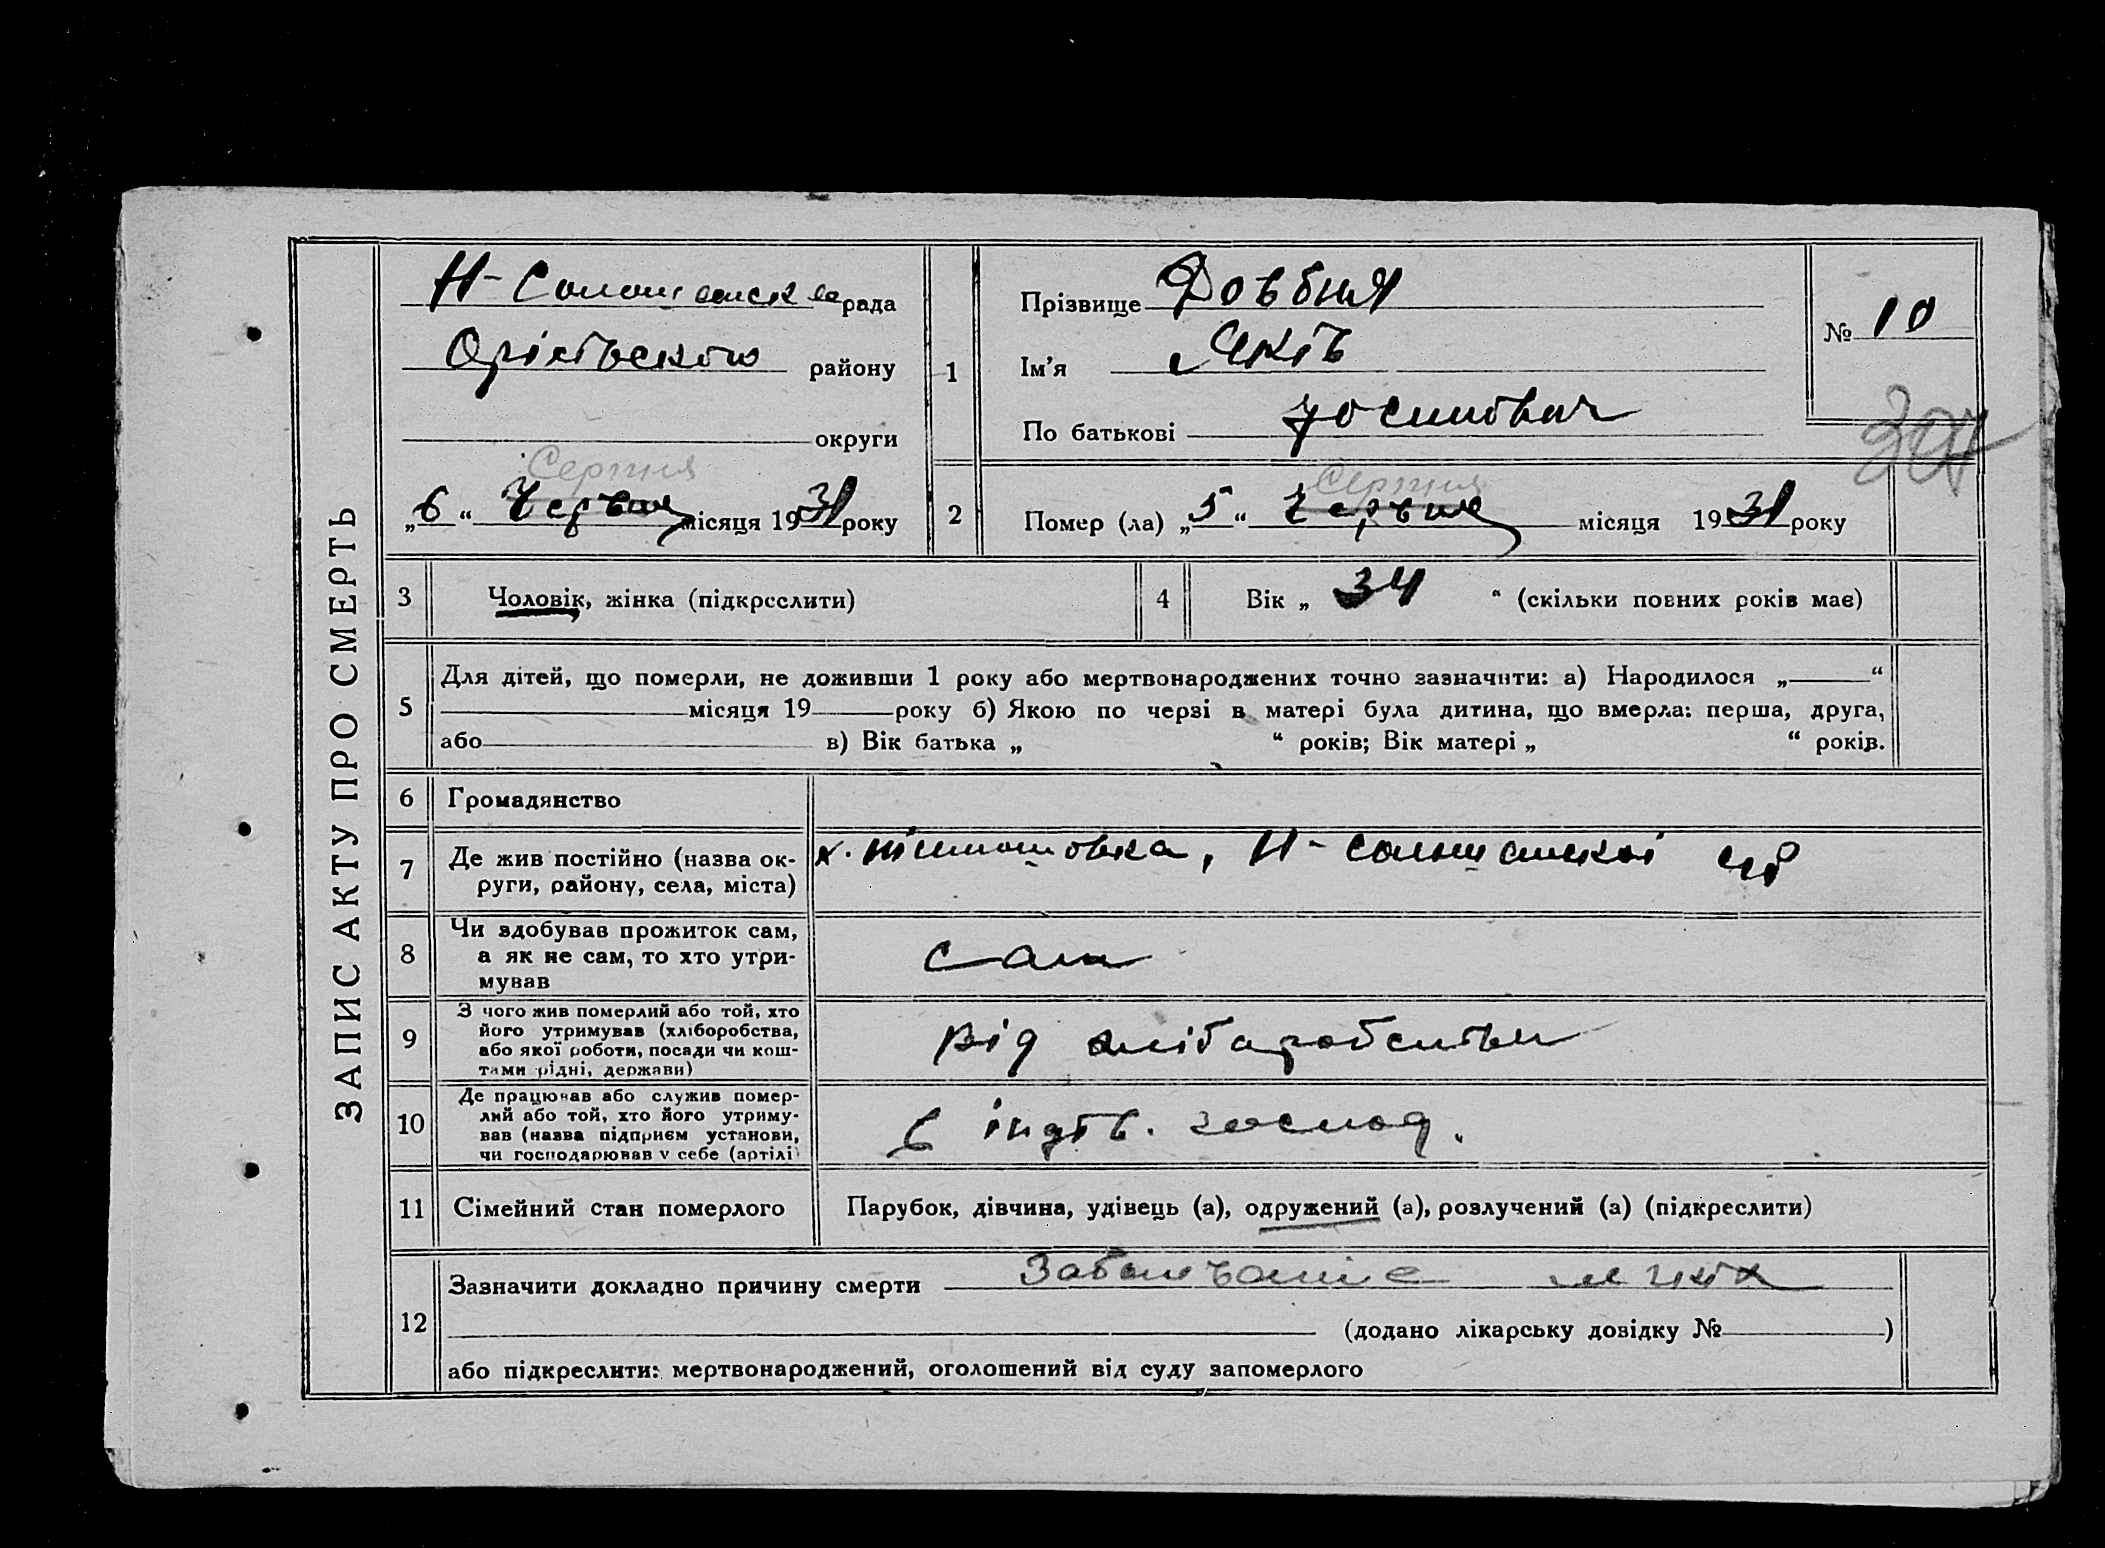 ЗАПИС АКТУ ПРО СМЕРТЬ
рада
району
округи
„6“ Серпня Червня місяця 1931 року
1
Прізвище Довбня
Ім’я Яків
По батькові Йосипович
№ 10
2
Помер (ла) „5“ Серпня Червня місяця 1931 року
3
Чоловік, жінка (підкреслити)
4
Вік „ 34 “ (скільки повних років має)
5
Для дітей, що померли, не доживши 1 року або мертвонароджених точно зазначити: а) Народилося „ “
місяця 19 року б) Якою по черзі в матері була дитина, що вмерла: перша, друга,
або в) Вік батька „ “ років; Вік матері „ “ років.
6
Громадянство
7
Де жив постійно (назва ок-
руги, району, села, міста)
х.
8
Чи здобував прожиток сам,
а як не сам, то хто утри-
мував
сам
9
З чого жив померлий або той, хто
його утримував (хліборобства,
або якої роботи, посади чи кош-
тами рідні, держави)
від хліборобства
10
Де працював або служив помер-
лий або той, хто його утриму-
вав (назва підприєм установи,
чи господарював у себе (артілі)
в індів. господ.
11
Сімейний стан померлого
Парубок, дівчина, удівець (а), одружений (а), розлучений (а) (підкреслити)
12
Зазначити докладно причину смерти
(додано лікарську довідку № )
або підкреслити: мертвонароджений, оголошений від суду запомерлого